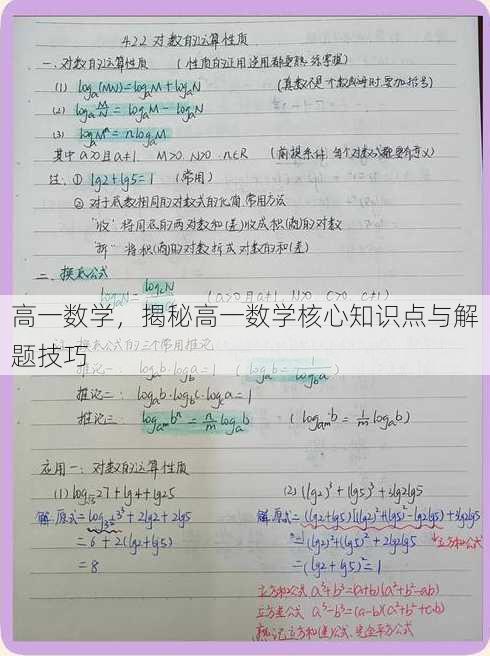 4.2.2 对数的运算性质
一、对数的运算性质 (性质的正用逆用都要熟练掌握)
(1) logₐ(MN)=logₐM+logₐN (真数不是个数或字母时要加括号)
(2) logₐM/N = logₐM - logₐN
(3) logₐMⁿ = nlogₐM
其中 a>0且a≠1, M>0, N>0, n∈R (前提条件 每个对数式都要有意义)
注: ① lg2+lg5=1 (常用)
② 对于底数相同的对数式的化简,常用方法
"收" 将同底的两对数和(差)收成积(商)的对数
"拆" 将积(商)的对数拆成对数的和(差)
二、换底公式
logₐN=
高一数学，揭秘高一数学核心知识点与解
题技巧
换底公式的三个常用推论
推论一: logₐb·log_b a=1 (logₐb = 1/log_b a)
推论二: logₐb·log_b c·log_c a=1
推论三: log_{aᵐ}bⁿ = n/m logₐb (log_{aᵐ}b = 1/m logₐb)
应用一: 对数的运算性质
(1) log_{√3}27+lg4+lg25 (2) (lg2)³+(lg5)³+3lg2lg5
=6+2(lg2+lg5)
=8 =(lg2+lg5)²=1
立方和公式 a³+b³=(a+b)(a²+b²-ab)
立方差公式 a³-b³=(a-b)(a²+b²+ab)
熟记立方和(差)公式、完全平方公式